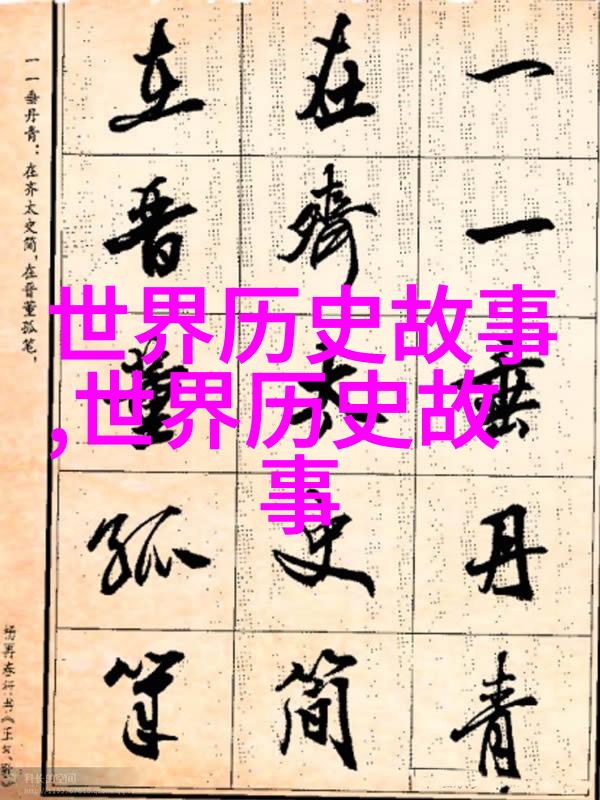 一一垂丹青
在齐太史简
在晋董狐笔
一一垂丹青：在齐太史简，在晋董狐笔，
世界历史故事
,世界历史故
事
科长的空间